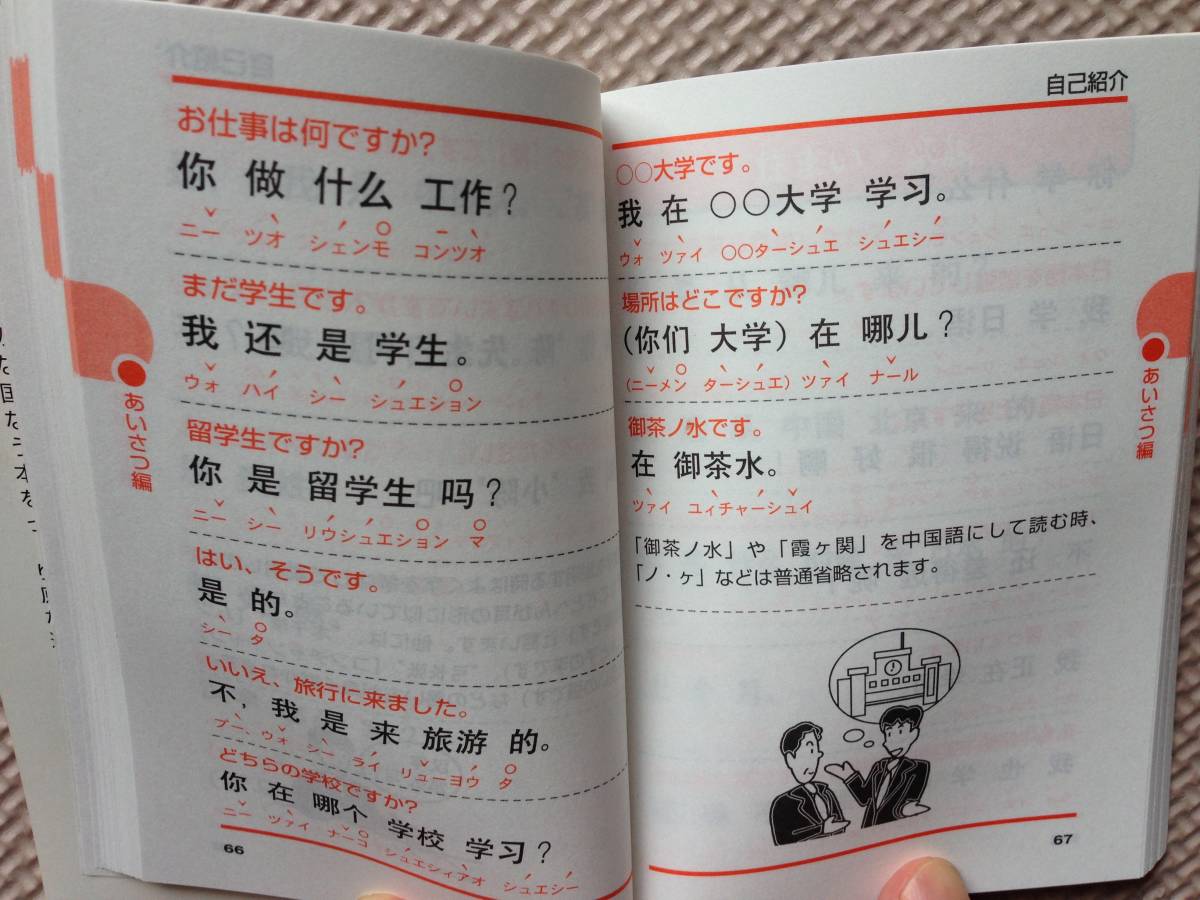 お仕事は何ですか?
你 做 什么 工作?
ニー ツオ シェンモ コンツオ
まだ学生です。
我 还 是 学生。
ウォ ハイ シー シュエション
留学生ですか?
你 是 留学生 吗?
ニー シー リウシュエション マ
はい、そうです。
是 的。
シー タ
いいえ、旅行に来ました。
不, 我 是 来 旅游 的。
プー、ウォ シー ライ リューヨウ タ
どちらの学校ですか?
你 在 哪个 学校 学习?
ニー ツァイ ナーコ シュエシィアオ シュエシー
66
あいさつ編
自己紹介
○○大学です。
我 在 ○○大学 学习。
ウォ ツァイ ○○ターシュエ シュエシー
場所はどこですか?
(你们 大学) 在 哪儿?
(ニーメン ターシュエ) ツァイ ナール
御茶ノ水です。
在 御茶水。
ツァイ ユィチャーシュイ
「御茶ノ水」や「霞ヶ関」を中国語にして読む時、
「ノ・ヶ」などは普通省略されます。
あいさつ編
67